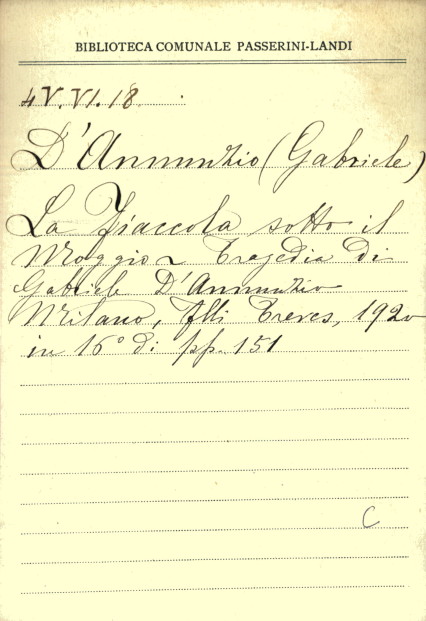 BIBLIOTECA COMUNALE PASSERINI-LANDI
4V.VI.18.
D'Annunzio (Gabriele)
La Fiaccola sotto il
Moggio ~ Tragedia di
Gabriele D'Annunzio
Milano, Flli Treves, 1920
in 16° di pp. 151
C